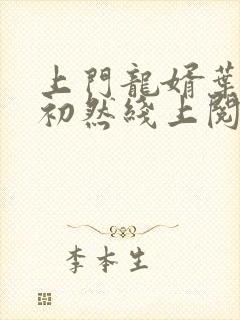 上門龍婿葉
初然綫上閱
李本生